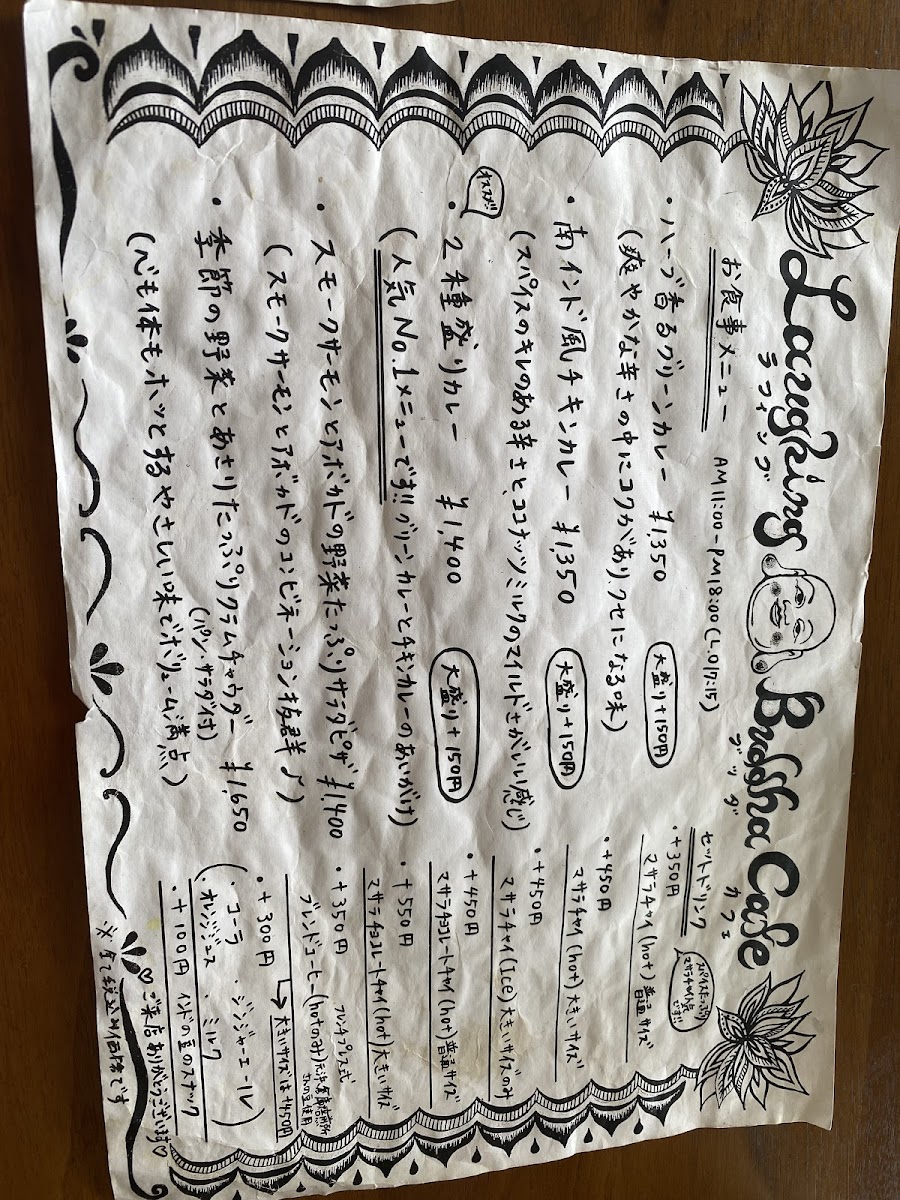 Laughing Buddha Cafe
ラフィング ブッダ カフェ
お食事メニュー AM11:00-PM18:00(L.O17:15)
・ハーブ香るグリーンカレー ¥1,350 大盛り+150円
(爽やかな辛さの中にコクがあり、クセになる味)
・南インド風チキンカレー ¥1,350 大盛り+150円
(スパイスのキレのある辛さと、ココナッツミルクのマイルドさがいい感じ)
オススメ!!
・2種盛りカレー ¥1,400 大盛り+150円
(人気No.1メニューです!! グリーンカレーとチキンカレーのあいがけ)
・スモークサーモンとアボカドの野菜たっぷりサラダピザ ¥1,400
(スモークサーモンとアボカドのコンビネーション抜群♪)
・季節の野菜とあさりたっぷりクラムチャウダー ¥1,650
(パン・サラダ付)
(心も体もホッとするやさしい味でボリューム満点)
セットドリンク
スパイスたっぷり
マサラチャイ人気
です!!
・+350円
マサラチャイ(hot)普通サイズ
・+450円
マサラチャイ(hot)大きいサイズ
・+450円
マサラチャイ(Ice)大きいサイズのみ
・+450円
マサラチョコレートチャイ(hot)普通サイズ
・+550円
マサラチョコレートチャイ(hot)大きいサイズ
・+350円 フレンチプレス式
ブレンドコーヒー(hotのみ)
さんの豆使用
→大きいサイズは+450円
・+300円
(・コーラ ・ジンジャーエール
・オレンジジュース ・ミルク)
・+100円 インドの豆のスナック
♡ご来店ありがとうございます♡
※全て税込み価格です